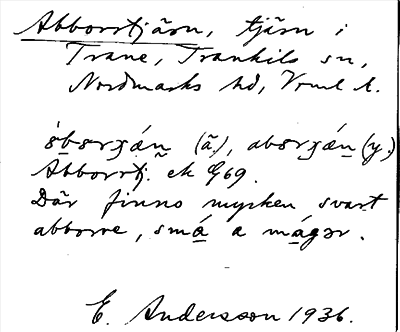 Abborrtjärn, tjärn i
Trane, Trankils sn,
Nordmarks hd, Vrml l.
(ä), (y.)
Abborrtj. ek G69.
Där finns mycken svart
abborre, små a mágər.
E. Andersson 1936.